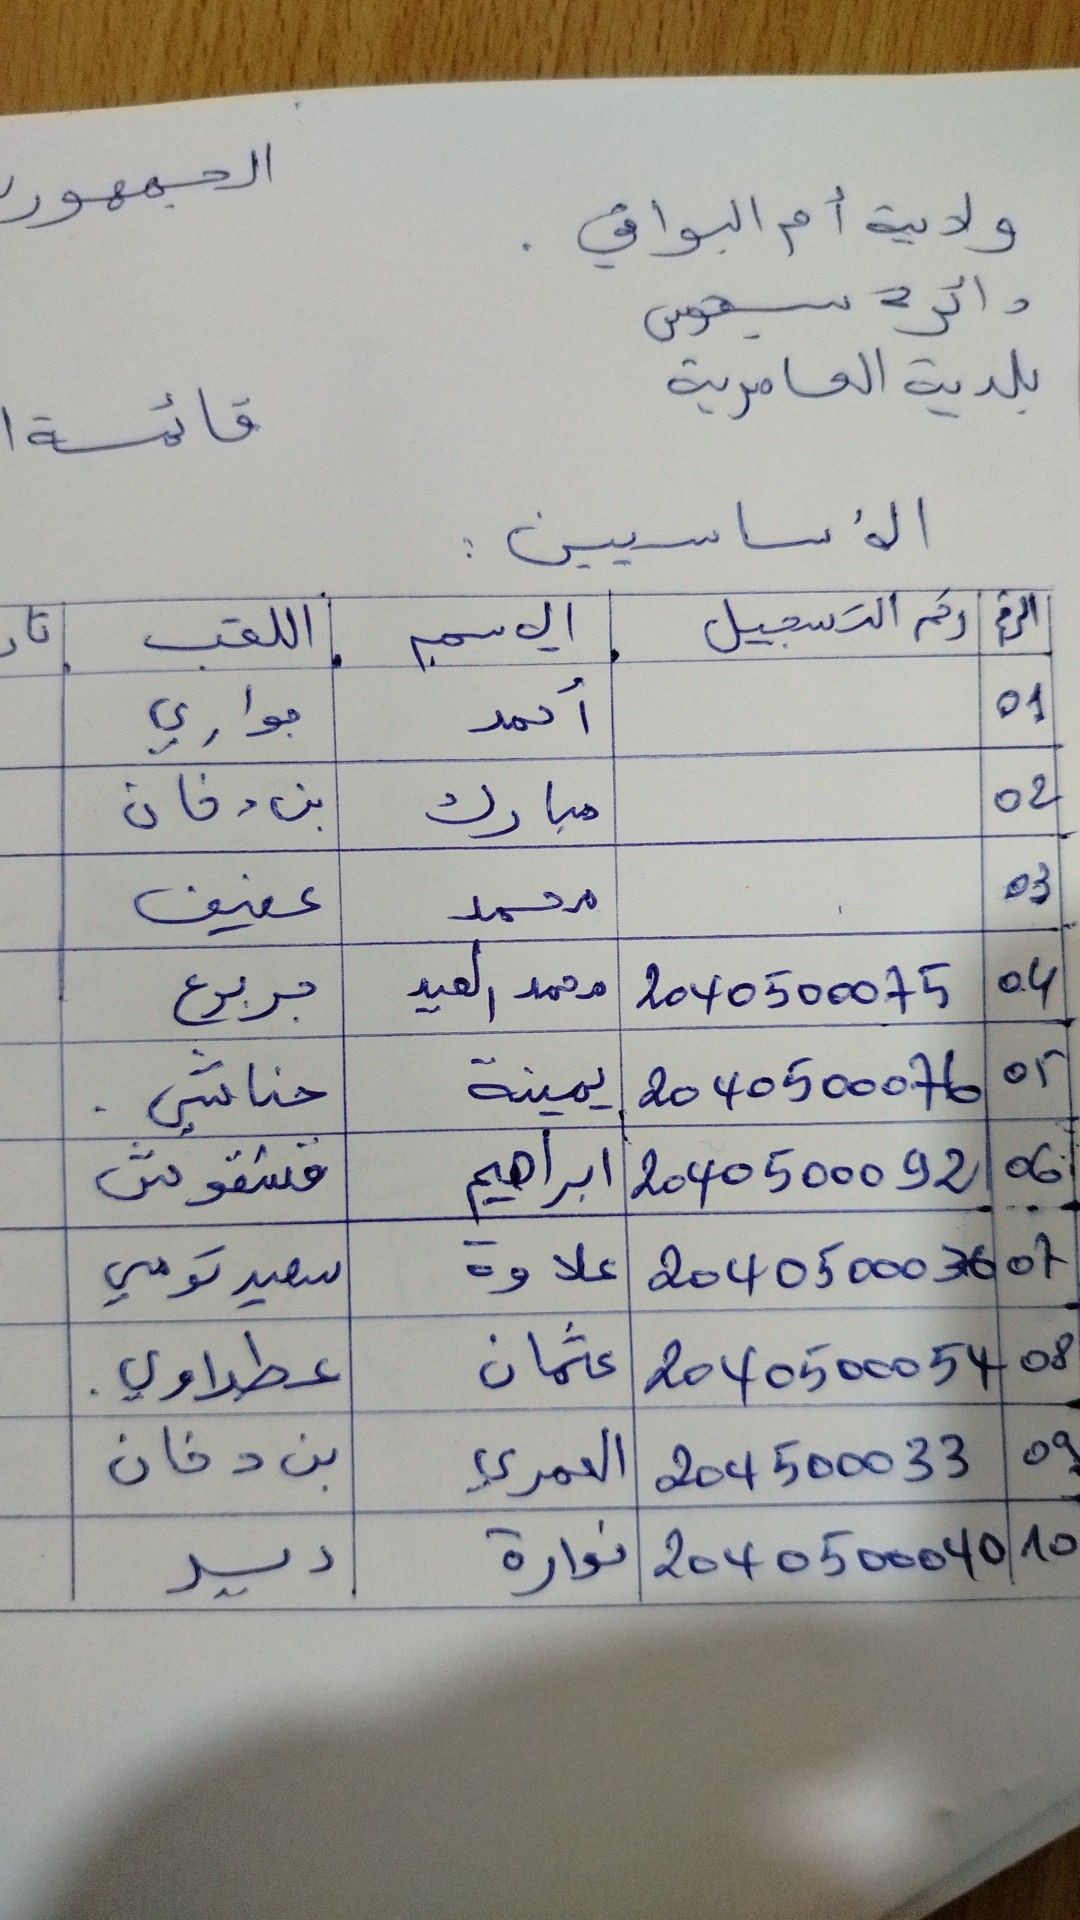 الجمهور
ولاية أم البواقي .
دائرة سيقوس
بلدية العامرية
قائمة ا
الأساسيين :
الرقم رقم التسجيل الاسم اللقب تار
01 أحمد بواري
02 مبارك بن دخان
03 محمد عفيف
04 2040500075 محمد العيد جربوع
05 2040500076 يمينة حناشي .
06 2040500092 ابراهيم قشقوش
07 2040500036 علاوة سعيد تومي
08 2040500054 عثمان عطراوي .
09 204500033 العمري بن دخان
10 2040500040 نوارة دسير